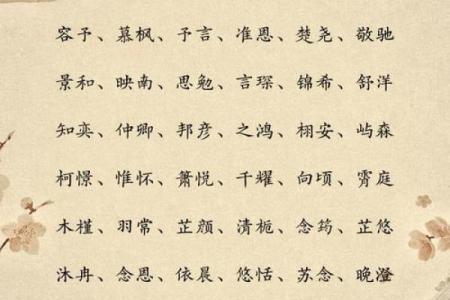 容予、慕枫、予言、准恩、楚尧、敬驰
景和、映南、思勉、言琛、锦希、舒洋
知奕、仲卿、邦彦、之鸿、栩安、屿森
柯憬、惟怀、箫悦、千耀、向顷、霄庭
木槿、羽常、芷颜、清栀、念筠、芷悠
沐冉、念恩、依晨、悠恬、苏念、晚澄